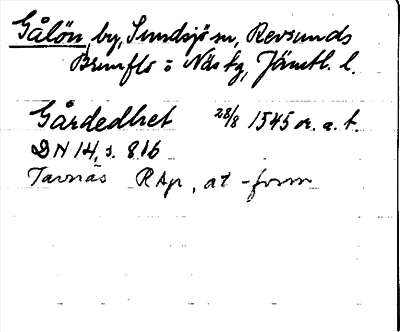 Gålön, by, Sundsjö sn, Revsunds
Brunflo o Näs tg, Jämtl. l.
Gårdedhet 28/8 1545 or. a. t.
DN 14, s. 816
Tavnäs RAp, at-form